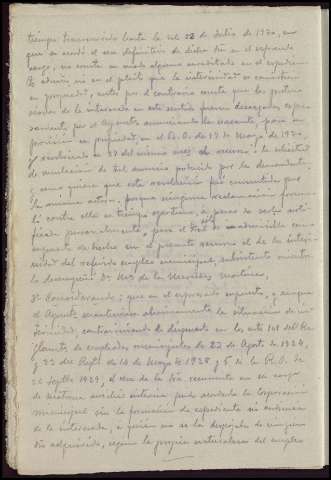 tiempo transcurrido hasta la del 22 de Julio de 1930, en
que se acordó el cese definitivo de dicha Sra en el expresado
cargo, no consta en modo alguno acreditado en el expedien-
te admvo, ni en el pleito que la interinidad se convirtiera
en propiedad, antes por el contrario consta que las
de la interesada en este sentido fueron
por el Ayuntº anunciando la vacante, para su
provisión en propiedad, en el B.O. de 17 de Marzo de 1930,
y resolviendo en 27 del mismo mes el recurso o solicitud
de anulación de tal anuncio producido por la demandante
y como quiera que esta resolución fué consentida por
la misma actora, porque ninguna reclamación formu-
ló contra ella en tiempo oportuno, a pesar de serle noti-
ficada personalmente, para el Tral es inadmisible con-
supuesto de hecho en el presente recurso el de la interi-
nidad del referido empleo municipal,
la Dª Mª de las Mercedes Martínez,
3º Considerando: que en el expresado supuesto, y aunque
el Ayuntº mantuviera abusivamente la situación de in-
terinidad, contraviniendo lo dispuesto en los arts 101 del Re-
glamento de empleados municipales de 23 de Agosto de 1924,
y 23 del Regtº de 14 de Mayo de 1928 y 5 de la R.O. de
26 Septbre 1929, el cese de la Sra recurrente en su cargo
de matrona auxiliar interina pudo acordarlo la Corporación
Municipal sin la formación de expediente ni audiencia
de la interesada, a quien no se la despojaba de ningún
dro adquirido, según la propia naturaleza del empleo